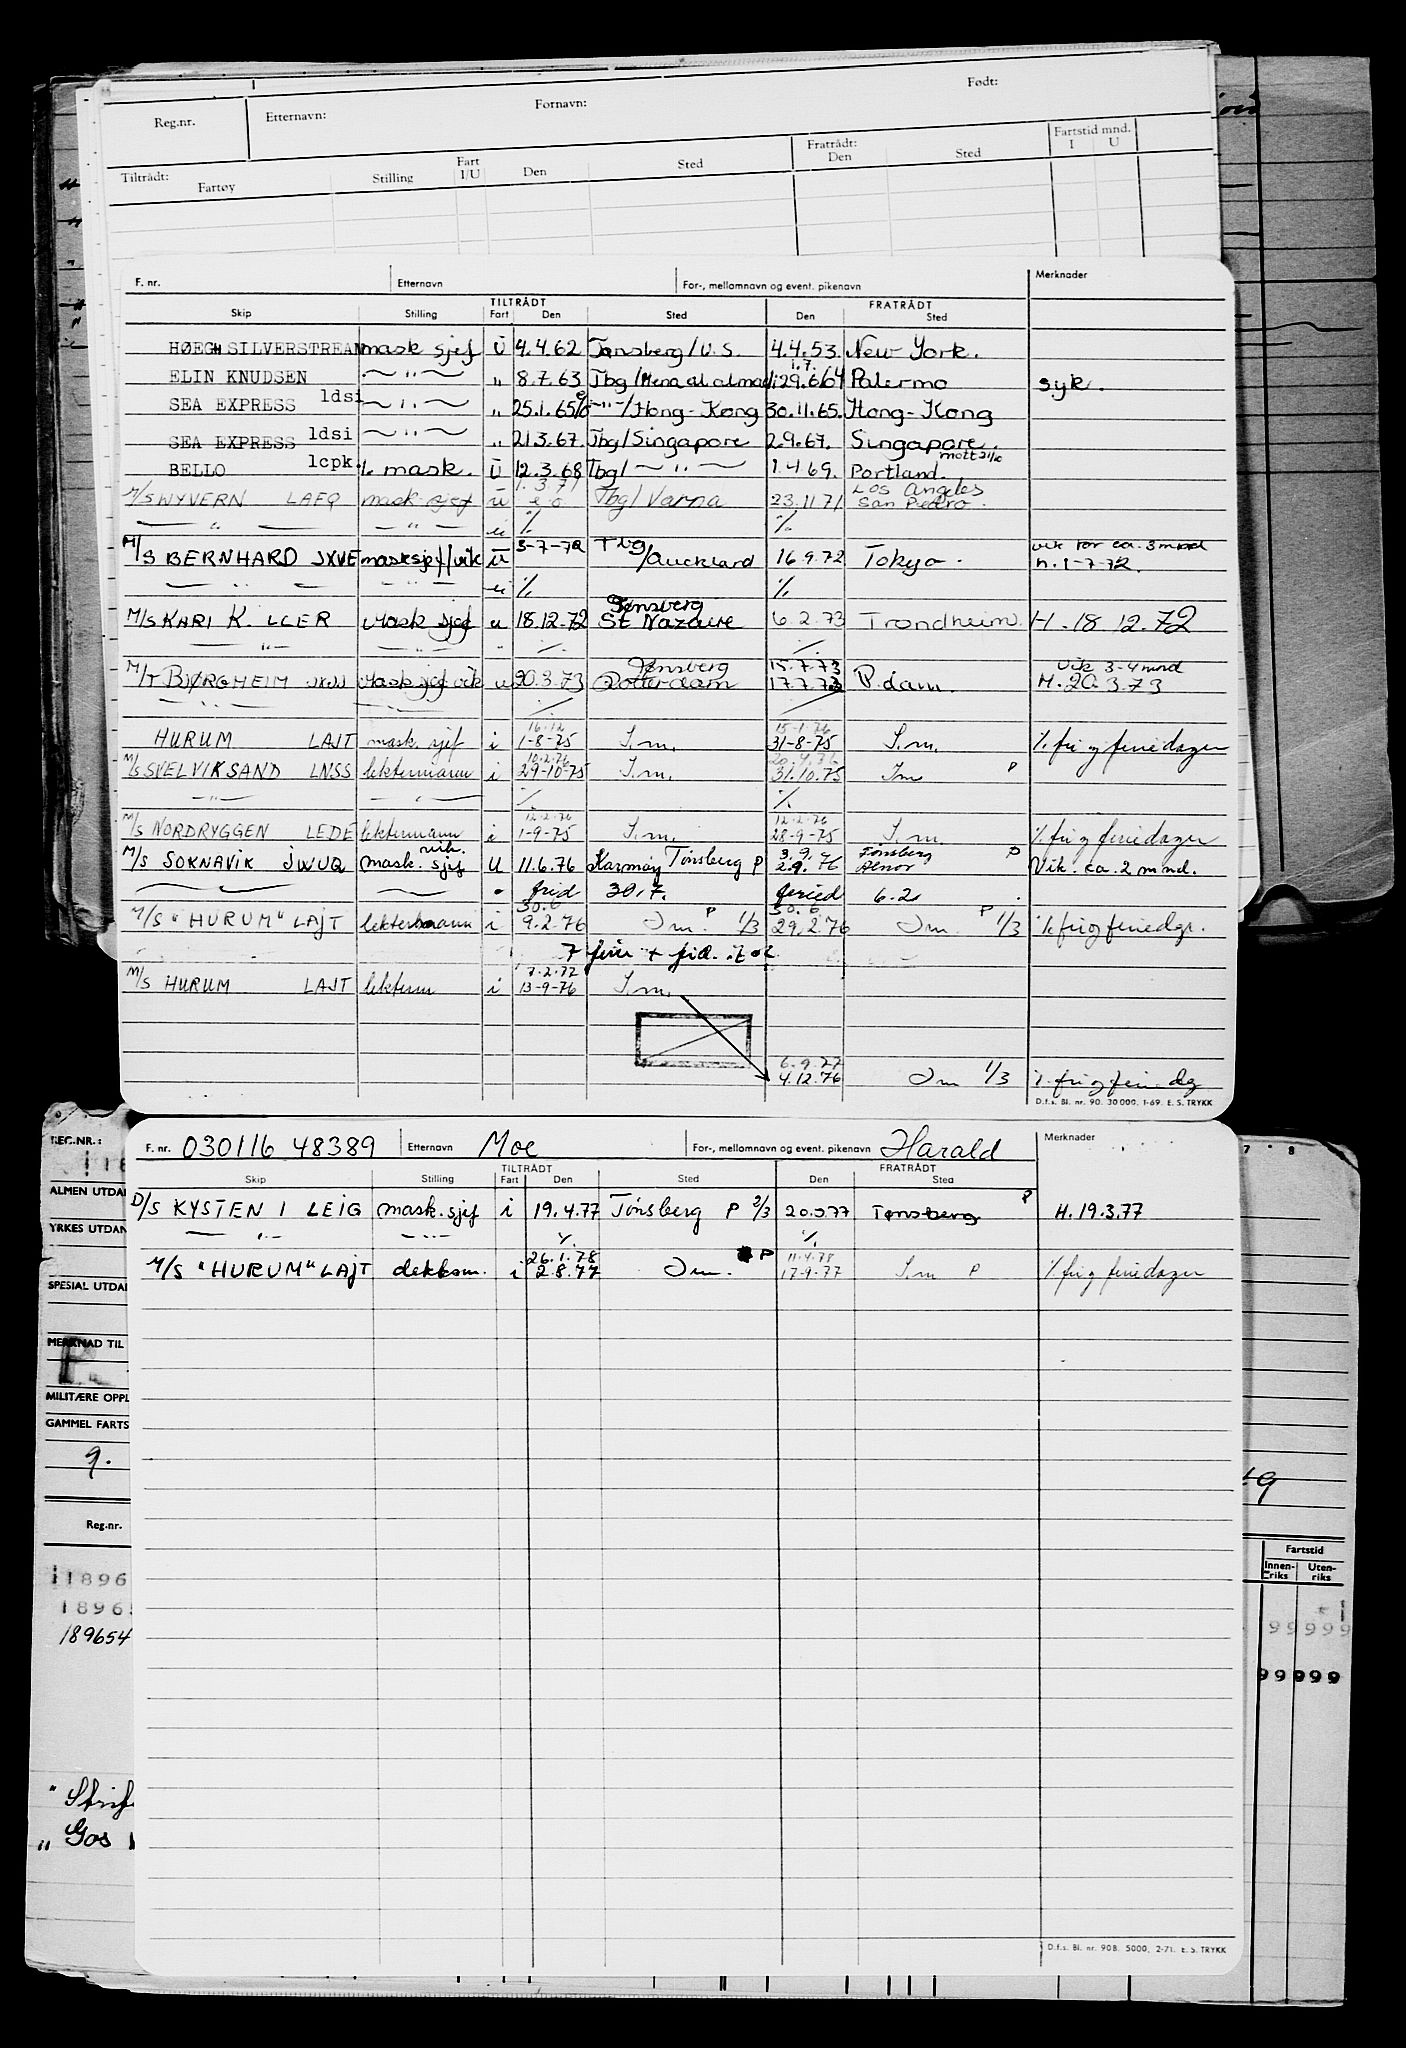 Reg.nr. Etternavn: Fornavn: Født:
Tiltrådt: Fratrådt: Fartstid mnd.
Fartøy Stilling Fart I/U Den Sted Den Sted I U
F. nr. Etternavn For-, mellomnavn og event. pikenavn Merknader
TILTRÅDT FRATRÅDT
Skip Stilling Fart Den Sted Den Sted
HØEGH SILVERSTREAM mask sjef U 4.4.62 Tønsberg/U.S. 4.4.53. New York.
1.7.
ELIN KNUDSEN — " — " 8.7.63 Tbg/Mena al. 29.6/64 Palermo syk.
SEA EXPRESS ldsi — " — " 25.1.65 — " —/Hong-Kong 30.11.65. Hong-Kong
SEA EXPRESS ldsi — " — " 21.3.67. Tbg/Singapore 2.9.67. Singapore.
BELLO lcpk. 1. mask. U 12.3.68 Tbg/ — " — 1.4.69. Portland.
1.3.71 Los Angeles
M/S WYVERN LAEQ mask sjef u Tbg/Varna 23.11.71 San Pedro.
— " — — " — u % %
3-7-72 Tbg vik for ca. 3 mnd
M/S BERNHARD JXVE mask sjef/vik u /Auckland 16.9.72 Tokyo. h. 1-7-72.
— " — — " — u % %
Tønsberg
M/S KARI K. LCER Mask sjef u 18.12.72 St Nazaire 6.2.73 Trondheim. H. 18 12. 72
— " — — " — % %
Tønsberg 15.7.73 Vik 3-4 mnd
M/T BJØRGHEIM Mask sjef vik u 20.3.73 Rotterdam 17.7.73 R.dam. H. 20.3.73
— " — — " — % %
16.12 15-1-76
HURUM LAJT mask. sjef i 1-8-75 I.m. 31-8-75 I.m. % fri og feriedager
10.2.76 20.4.76
M/S SVELVIKSAND LNSS lektermann i 29-10-75 I.m. 31.10.75 Im P
— " — — " — % %
12.2.76 12.2.76
M/S NORDRYGGEN LEDE lektermann i 1-9-75 I.m. 28-9-75 I.m. % fri og feriedager
vik. 3.9. Tønsberg P
M/S SOKNAVIK JWUQ mask. sjef U 11.6.76 Karmøy Tønsberg P 2.9.76 Vik. ca. 2 mnd.
— — " frid 30.7. feried 6.2.
30.6 30.6
M/S "HURUM" LAJT lektermann i 9.2.76 Im. P 1/3 29.2.76 Im. P 1/3 % fri og feriedgr.
7 ferie + frid.
7.2.77
M/S HURUM LAJT lekterm i 13-9-76 I.m.
6.9.77
4.12.76 Im 1/3 % fri og ferie dg
D.f.s. Bl. nr. 90. 30000. 1-69. E. S. TRYKK
REG.NR.: F. nr. 030116 48389 Etternavn Moe For-, mellomnavn og event. pikenavn Harald Merknader 7 8
TILTRÅDT FRATRÅDT
ALMEN UTDA Skip Stilling Fart Den Sted Den Sted
D/S KYSTEN I LEIG mask.sjef i 19.4.77 Tönsberg P 2/3 20.5.77 Tønsberg P H. 19.3.77
YRKES UTDAN
— " — — " — % %
26.1.78 P 11.4.78
M/S "HURUM" LAJT dekksm. i 2.8.77 Im. 17.9.77 I.m P % fri og feriedager
SPESIAL UTDA
MERKNAD TIL
MILITÆRE OPPL
GAMMEL FARTS
9.
19
Reg.nr. Fartstid
Innen-riks Uten-riks
11896
18965
189654
99999
99999
" Skrif
" Gos
D.f.s. Bl. nr. 90B. 5000. 2-71. E. S. TRYKK